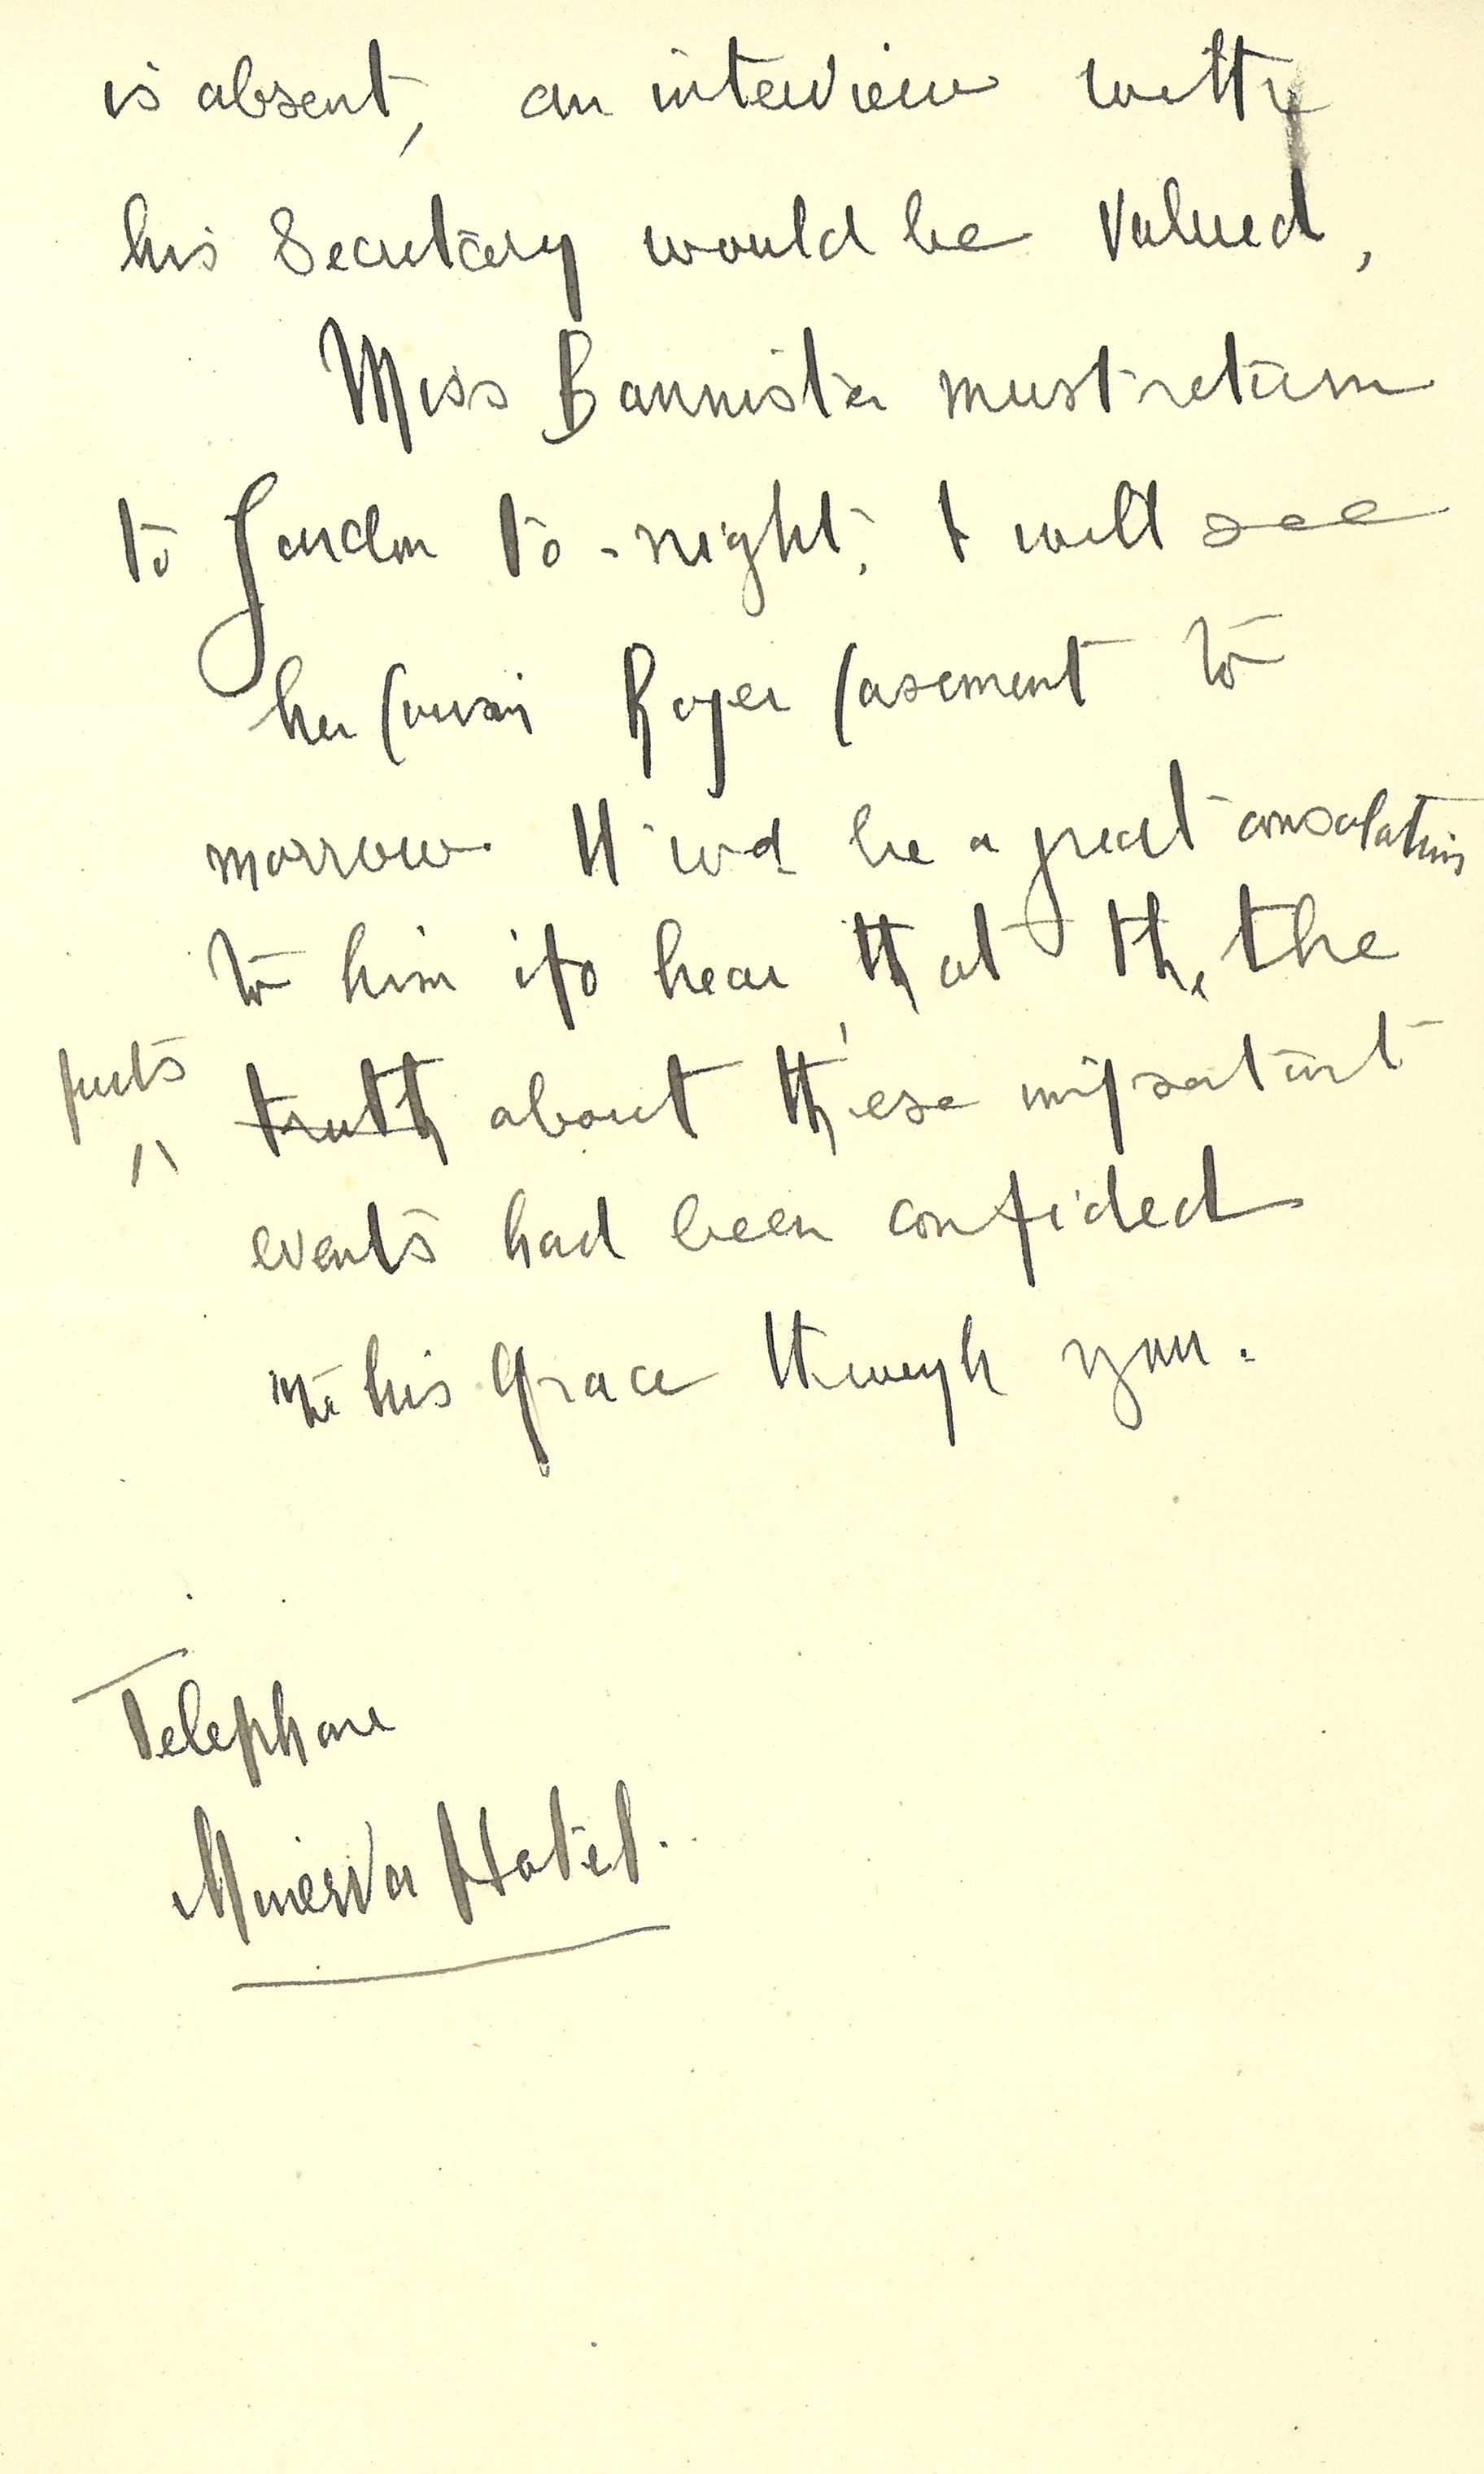 is absent, an interview with
his Secretary would be valued,
Miss Bannister must return
to London to-night, & will see
her Cousin Roger Casement to
morrow. It wd be a great consolation
to him to hear that the the
facts truth about these important
events had been confided
to his Grace through you.
Telephone
Minerva Hotel.